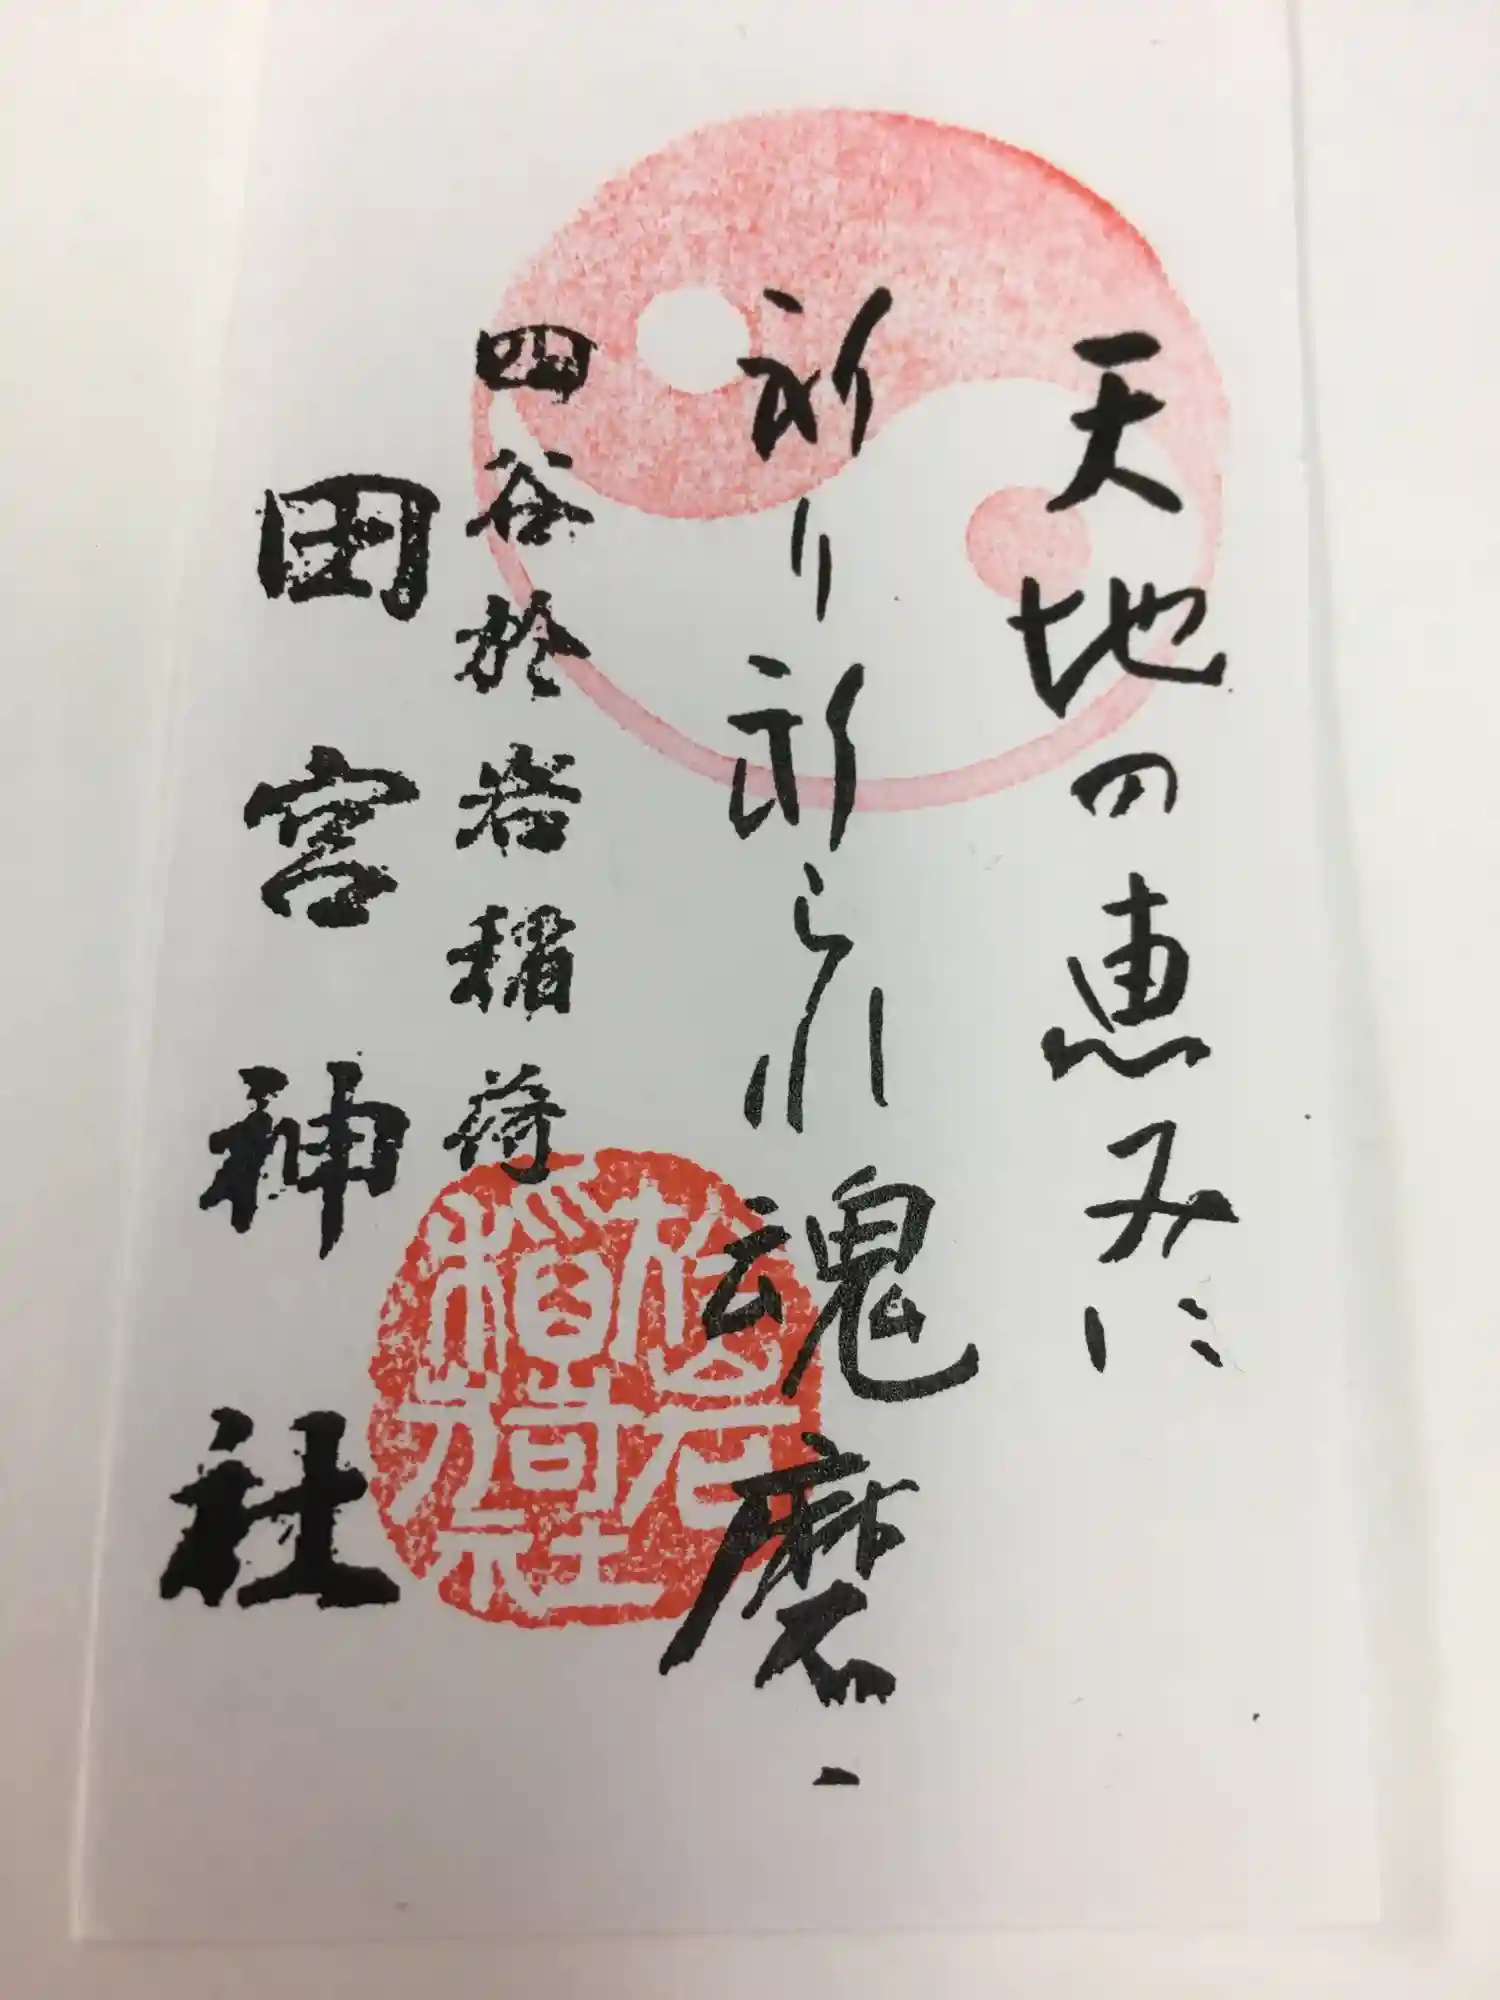 天地の恵みに
祈り祈られ魂磨く
四谷於岩稲荷
田宮神社
於岩稲荷社